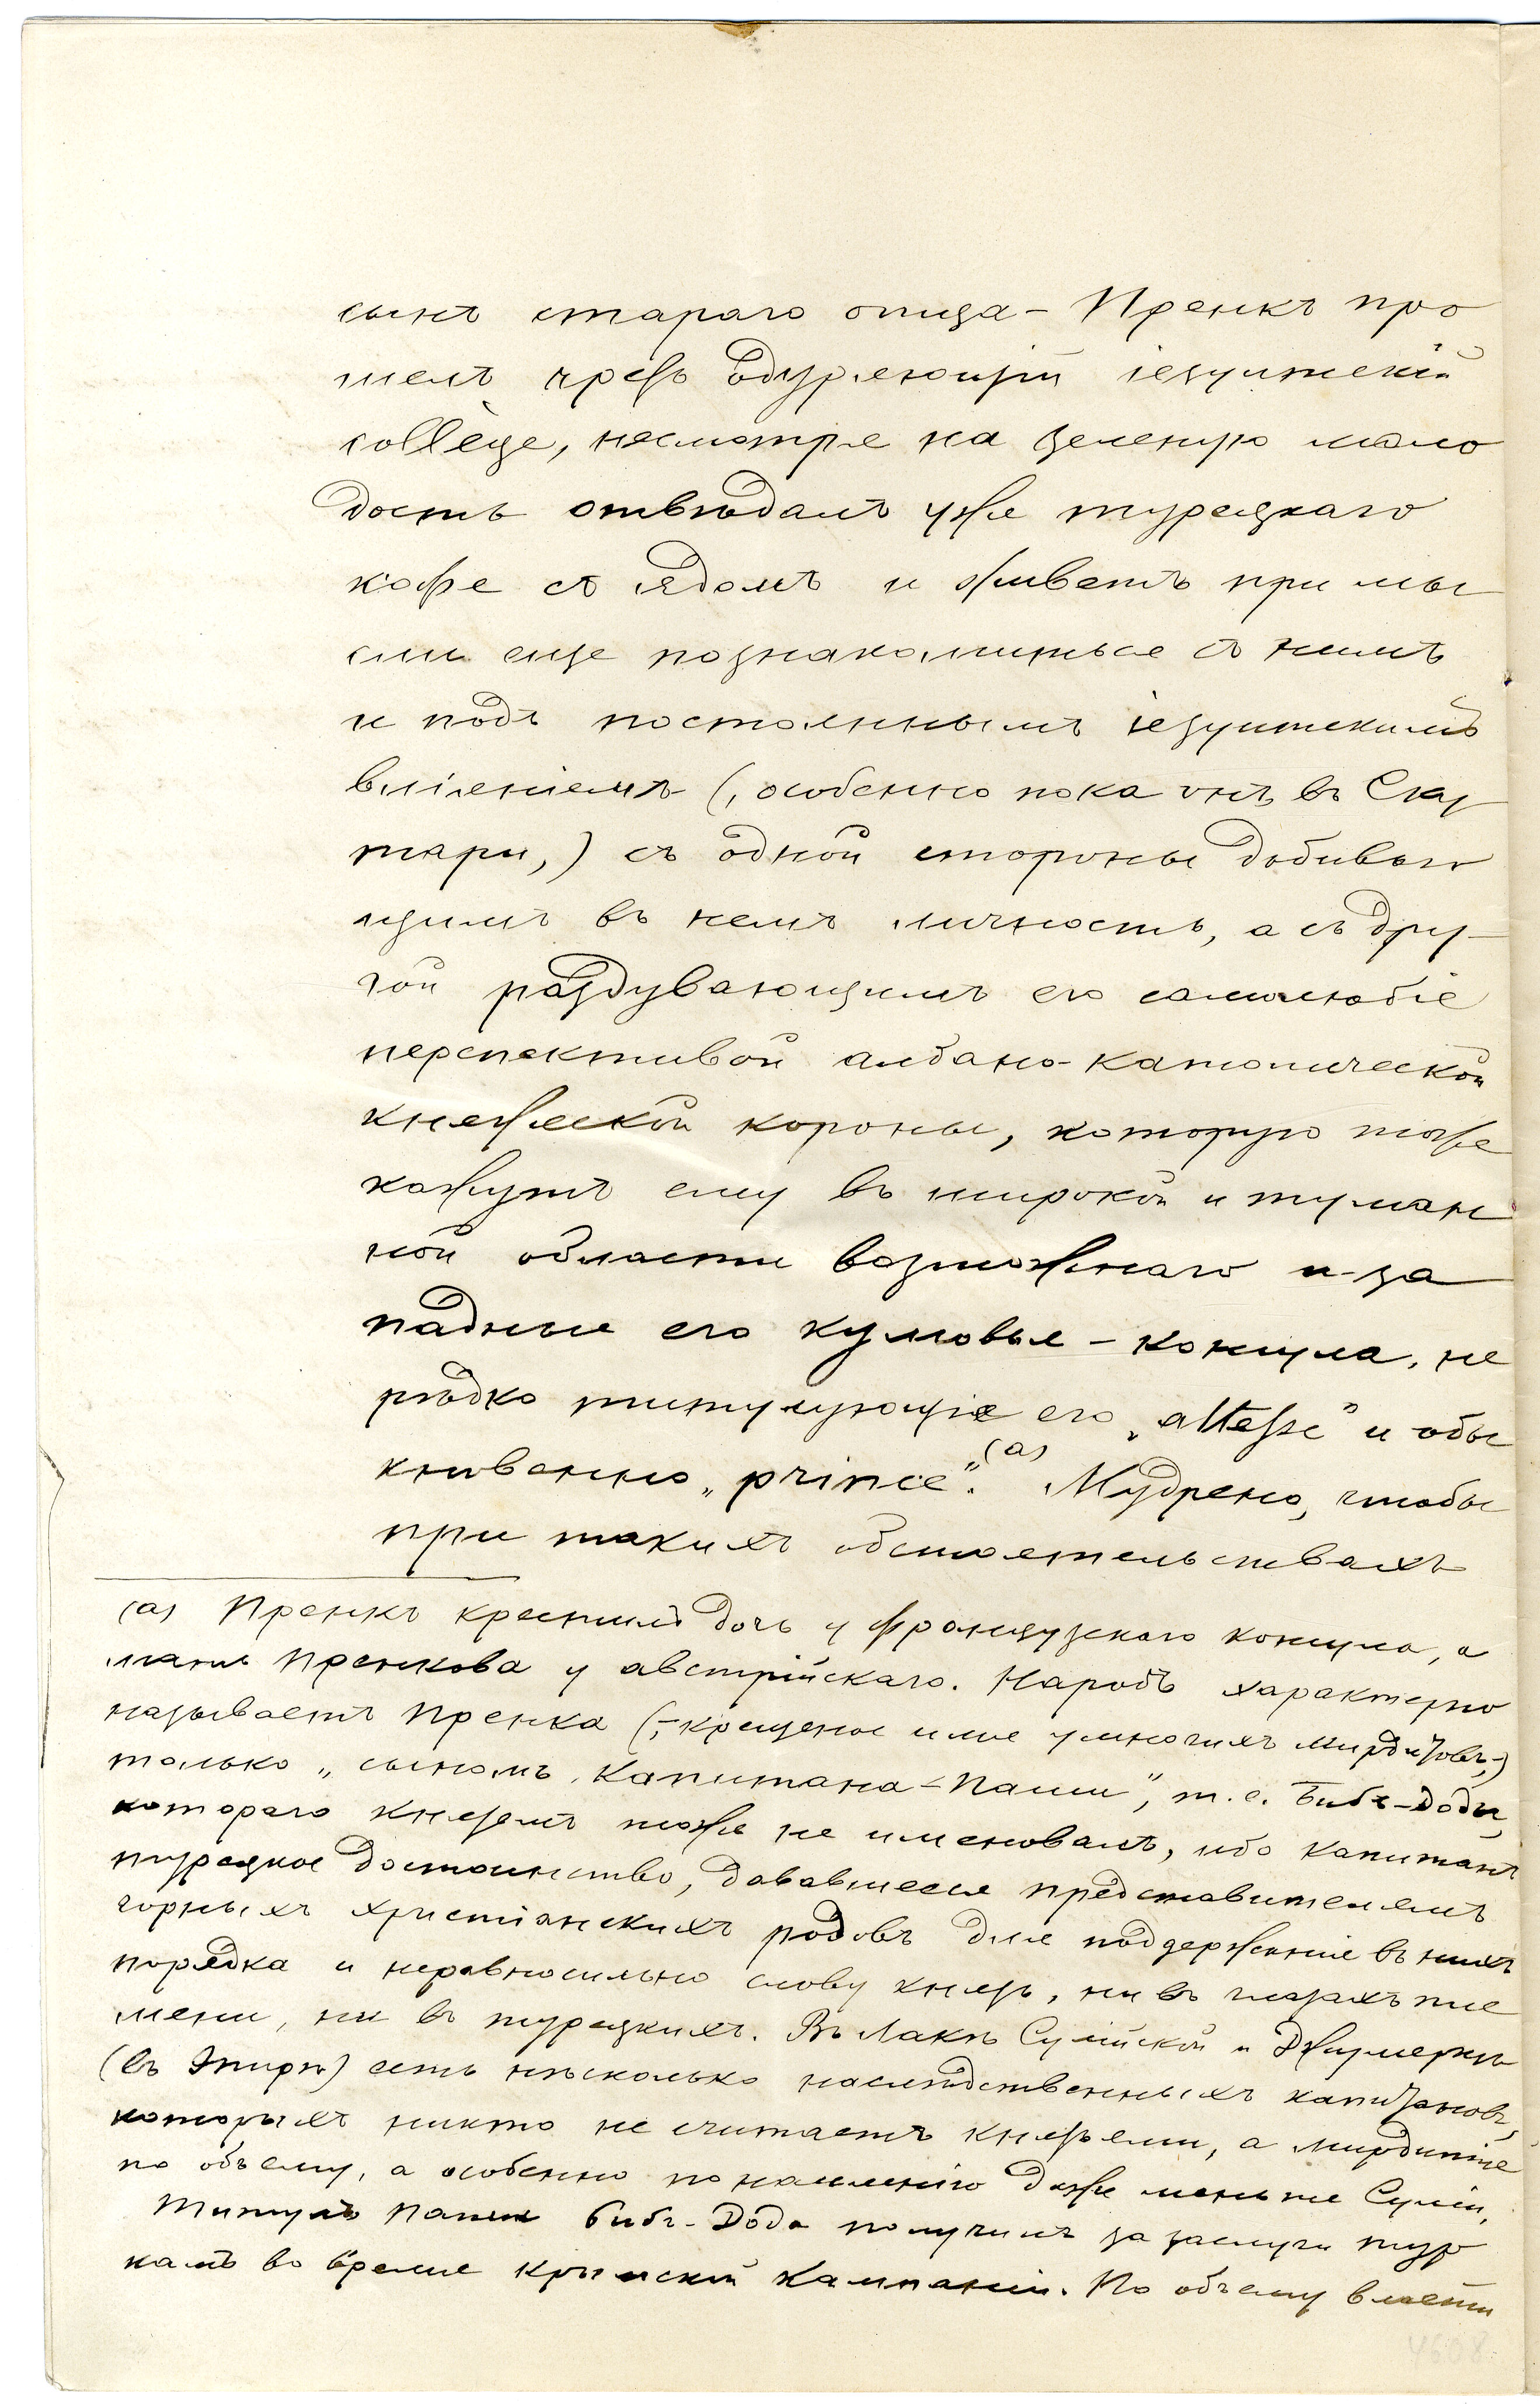 сынъ стараго отца – Пренкъ про
шелъ чрезъ одуряющій іезуитскій
collège, несмотря на зеленую моло
дость отвѣдалъ уже турецкаго
кофе съ ядомъ и живетъ при мы
сли еще познакомиться съ нимъ
и подъ постояннымъ іезуитскимъ
вліяніемъ (, особенно пока онъ въ Ску
тари,) съ одной стороны добиваю
щимъ въ немъ личность, а съ дру-
гой раздувающимъ его самолюбіе
перспективой албано-католической
княжеской короны, которую тоже
кажутъ ему въ широкой и туман
ной области возможнаго и за
падные его кумовья – консула, не
рѣдко титулующіе его „altesse" и обы
кновенно „prince". (а) Мудрено, чтобы
при такихъ обстоятельствахъ
(а) Пренкъ крестилъ дочь у французскаго консула, а
мать Пренкова у австрійскаго. Народъ характерно
называетъ Пренка (,-крещеное имя у многихъ мирдитовъ,-)
только „сыномъ Капитана-Паши", т. е. Бибъ-Доды,
котораго княземъ тоже не именовалъ, ибо капитанъ
турецкое достоинство, дававшееся представителямъ
горныхъ христіанскихъ родовъ для поддержанія въ нихъ
порядка и неравносильно слову князь, ни въ глазахъ пле
мени, ни въ турецкихъ. Въ Лакѣ Сулійской и Джумеркѣ
(въ Эпирѣ) есть нѣсколько наслѣдственныхъ капитановъ,
которыхъ никто не считаетъ князьями, а Мирдитіе
по объему, а особенно по населенію даже меньше Суліи,
Титулъ паши Бибъ-Дода получилъ за заслуги тур
камъ во время крымской кампаніи. По объему власти
4608